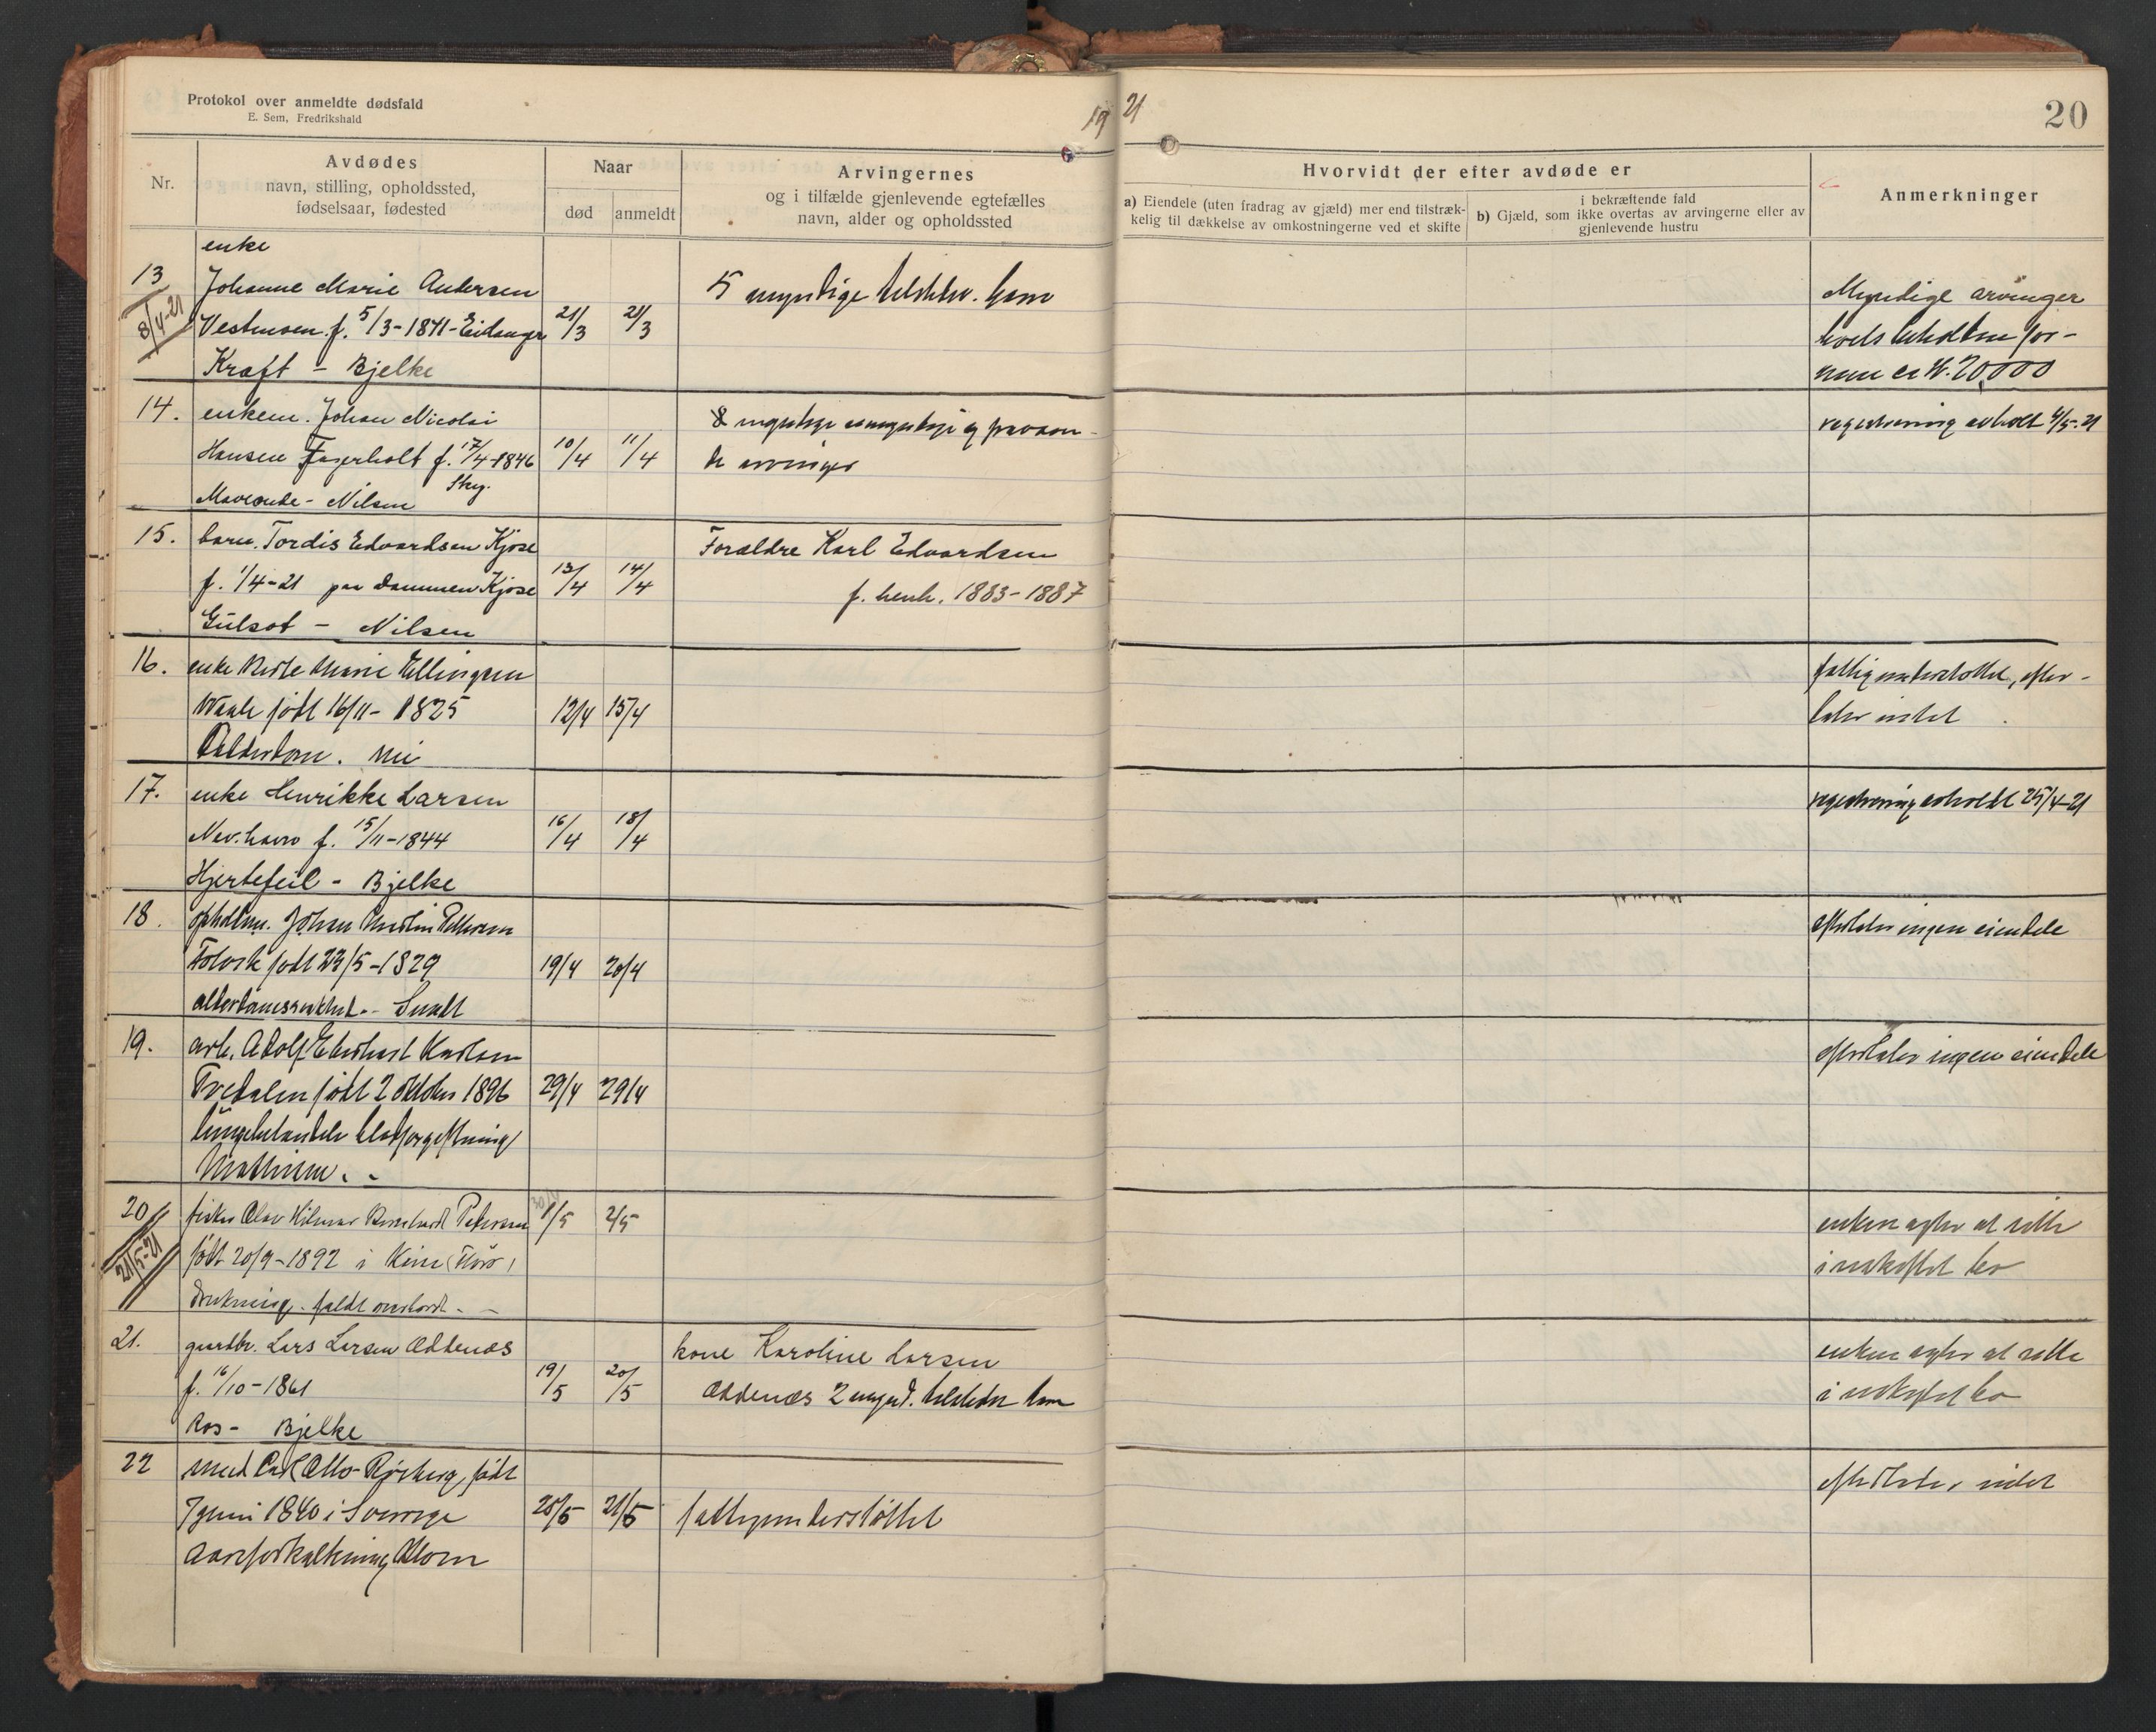 Protokol over anmeldte dødsfald
E. Sem, Fredrikshald
1921
20
Nr.
Avdødes
navn, stilling, opholdssted,
fødselsaar, fødested
Naar
død
anmeldt
Arvingernes
og i tilfælde gjenlevende egtefælles
navn, alder og opholdssted
Hvorvidt der efter avdøde er
a) Eiendele (uten fradrag av gjæld) mer end tilstræk-
kelig til dækkelse av omkostningerne ved et skifte
i bekræftende fald
b) Gjæld, som ikke overtas av arvingerne eller av
gjenlevende hustru
Anmerkninger
enke
13 Johanne Marie Andersen 5 myndige barn Myndige arvinger
8/4-21 f. 5/3-1841-Eidanger 21/3 21/3 for-
Kræft - Bjelke er kr. 20,000
14. enkem. Johan Nicolai 8 myndige umyndige og registrering avholdt 4/5-21
Hansen Fagerholt f. 17/4-1846 10/4 11/4 arvinger
Mavesaar - Nilsen
15. barn. Tordis Edvardsen Kjose Forældre Karl Edvardsen
f. 1/4-21 paa Dammen Kjose 13/4 14/4 f. henh. 1883-1887
Gulsot - Nilsen
16. enke Berte Marie Ellingsen fattigunderstøttet, efter-
født 16/11-1825 12/4 15/4 later intet
Alderdom.
17. enke Henrikke Larsen registrering avholdt 25/4-21
Nev.havn f. 15/11-1844 16/4 18/4
Hjertefeil - Bjelke
18. Johan efterlater ingen eiendele
født 23/5-1829 19/4 20/4
alderdomssvakhet - Sundt
19. arb. Adolf Karlsen efterlater ingen eiendele
Tvedalen født 2 oktober 1896 29/4 29/4
lungebetændelse blodforgiftning
Mathisen. -
20 fisker Olav Hilmar Bernhard Pettersen 1/5 2/5 enken agter at sitte
21/5-21 født 20/9-1892 i i uskiftet bo
Drukning - faldt overbord -
21. gaardbr. Lars Larsen Oddenæs kone Karoline Larsen enken agter at sitte
f. 16/10-1861 19/5 20/5 Oddenæs 2 mynd. barn i uskiftet bo
Ros - Bjelke
22 smed Carl Otto født efterlater intet
7 juni 1840 i Sverige 20/5 21/5 fattigunderstøttet
Aareforkalkning